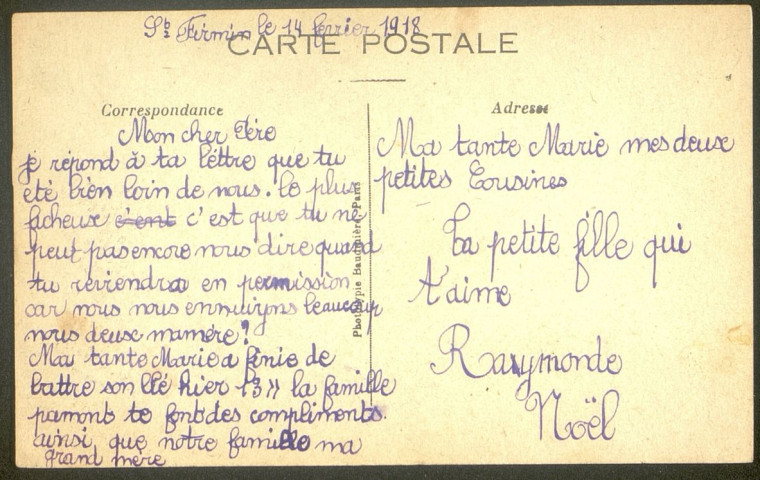 St Firmin le 14 février 1918
CARTE POSTALE
Correspondance
Mon cher Père
je répond à ta léttre que tu
été bien loin de nous. le plus
facheux c'ent c'est que tu ne
peut pas encore nous dire quand
tu reviendra en permission
car nous nous ennuiyons beaucoup
nous deux mamère?
Ma tante Marie a finie de
battre son blé hier 13 » la famille
pamont te font des compliments.
ainsi que notre famille ma
grand mère
Photypie Baudinière, Paris
Adresse
Ma tante Marie mes deux
petites Cousines
Ta petite fille qui
t'aime
Raymonde
Noël